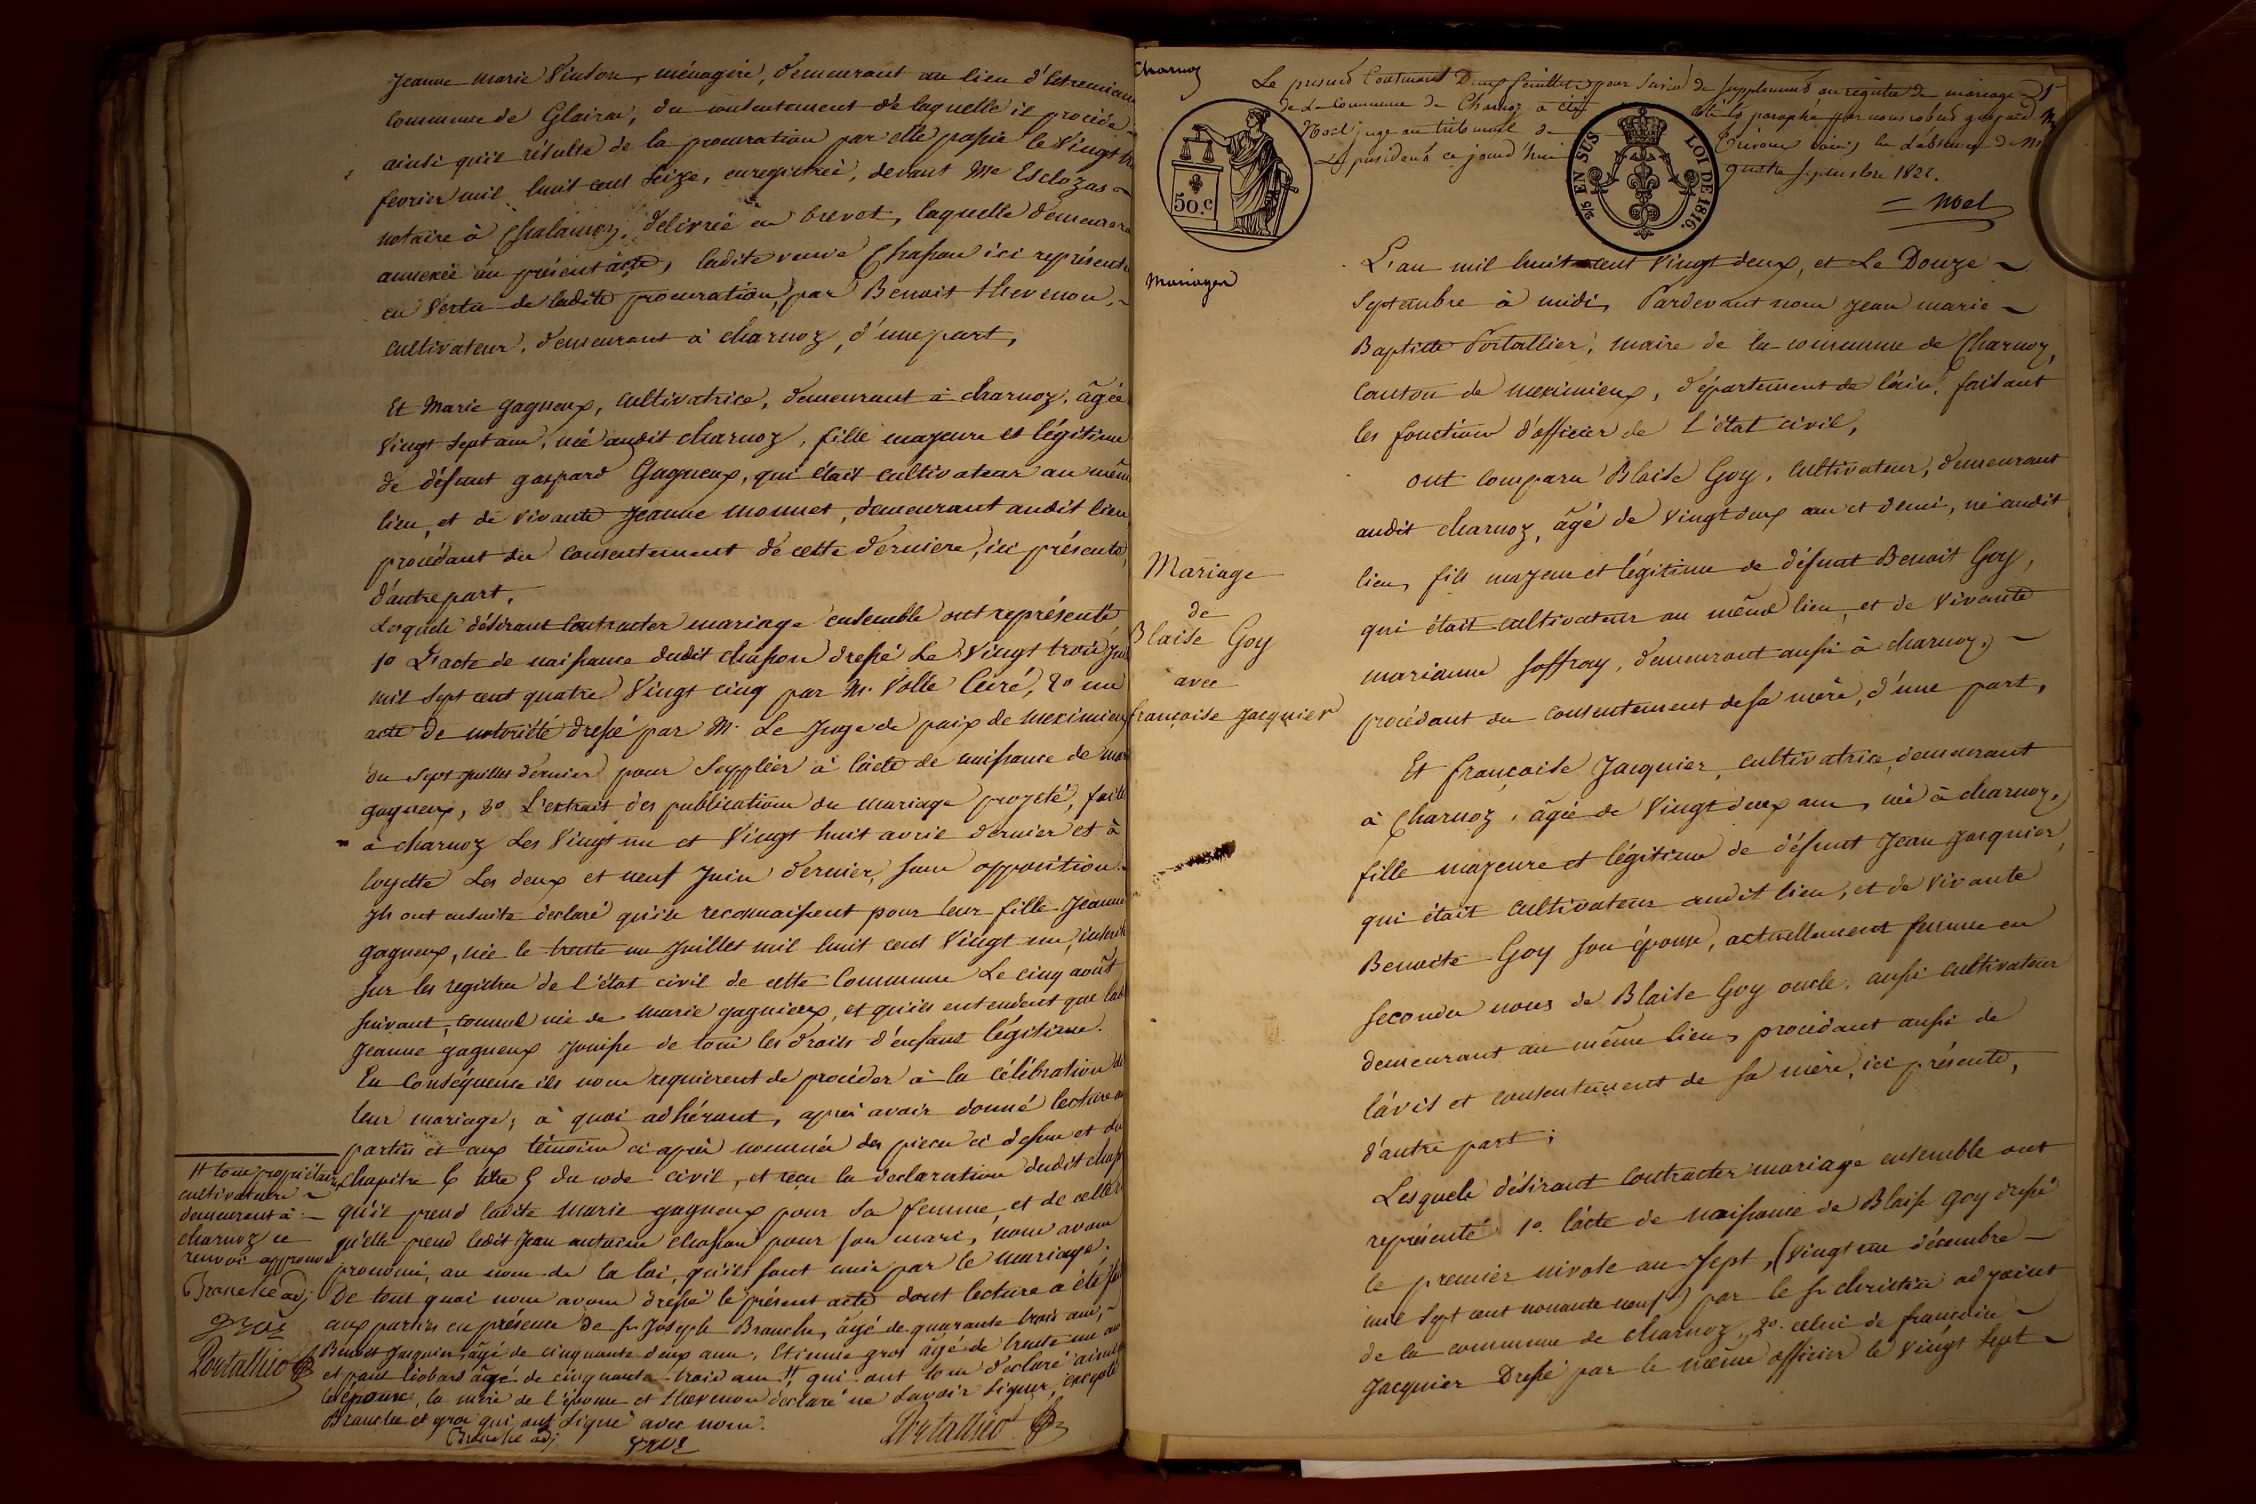 Jeanne marie Vinson, ménagère, demeurant au lieu d'
commune de Glairan, du consentement de laquelle il procède
ainsi qu'il résulte de la procuration par elle passée le Vingt
fevrier mil huit cent seize, enregistrée, devant Me Esclozas
notaire à Chalamon, délivrée en brevet, laquelle demeurera
annexée au présent acte, ladite veuve Chapau ici représentée
en vertu de ladite procuration, par Benoit thevenon,
cultivateur, demeurant à charnoz, d'une part,
Et Marie gagneux, cultivatrice, demeurant à charnoz, âgée
Vingt sept ans, née audit charnoz, fille majeure et légitime
de défunt gaspard Gagneux, qui était cultivateur au même
lieu, et de vivante Jeanne monnet, demeurant audit lieu
procédant du consentement de cette derniere, ici présente,
d'autre part.
Lesquels désirant contracter mariage ensemble ont représenté
1o L'acte de naissance dudit chapon dressé Le Vingt trois
mil sept cent quatre Vingt cinq par M. Volle Curé, 2o un
acte de notoriété dressé par M. Le Juge de paix de meximieux
du sept juillet dernier pour suppléer à l'acte de naissance de
gagneux, 3o L'extrait des publications du mariage projeté, faites
à charnoz Les Vingt un et Vingt huit avril dernier et à
loyette Les deux et neuf Juin dernier, sans opposition.
Ils ont ensuite déclaré qu'ils reconnaissent pour leur fille Jeanne
gagneux, née le trente un juillet mil huit cent Vingt un, inscrite
sur les registres de l'état civil de cette Commune Le cinq août
suivant, comme née de marie gagneux, et qu'ils entendent que
Jeanne gagneux jouisse de tous les droits d'enfant légitime.
En Conséquence ils nous requierent de procéder à la célébration de
leur mariage; à quoi adhérant, après avoir donné lecture aux
parties et aux témoins ci après nommés des pieces ci dessus et du
chapitre 6 titre 5 du code civil, et reçu la déclaration dudit
qu'il prend ladite Marie gagneux pour sa femme, et de celle
qu'elle prend ledit Jean antoine chapau pour son mari, nous avons
prononcé, au nom de la loi, qu'ils sont unis par le mariage.
De tout quoi nous avons dressé le présent acte dont lecture a été
aux parties en présence de sr Joseph Branche, âgé de quarante trois ans,
Benoit Jacquier, âgé de cinquante deux ans, Etienne gros âgé de trente un ans
et paul liobard âgé de cinquante trois ans # qui ont tous déclaré
l'épouse, la mère de l'épouse et thevenon déclaré ne savoir signer, excepté
Branche et gros qui ont signé avec nous.
Branche adj gros Portallier
# tous propriétaires
cultivateurs
demeurant à
charnoz ce
renvoi approuvé
Branche adj
gros
Portallier
Charnoz
Le présent Contenant Deux feuillets pour servir de supplement au registre de mariage
de la commune de Charnoz a été coté et paraphé par nous
Noel juge au tribunal de
Le président ce jourd'hui quatre septembre 1822.
Noel
50.C
5/5 EN SUS
LOI DE 1816.
Mariages
L'an mil huit cent Vingt deux, et Le Douze
Septembre à midi, Pardevant nous jean marie
Baptiste Portallier, maire de la commune de Charnoz,
Canton de meximieux, département de l'ain, faisant
les fonctions d'officier de L'état civil,
Mariage
de
Blaise Goy
avec
françoise Jacquier
ont comparu Blaise Goy, cultivateur, demeurant
audit charnoz, âgé de Vingt deux ans et demi, né audit
lieu, fils majeur et légitime de défunt Benoit Goy,
qui était cultivateur au même lieu, et de vivante
marianne Joffray, demeurant aussi à charnoz,
procédant du consentement de sa mère, d'une part,
Et françoise Jacquier, cultivatrice, demeurant
à Charnoz, âgée de Vingt deux ans, née à charnoz,
fille majeure et légitime de défunt Jean Jacquier,
qui était cultivateur audit lieu, et de vivante
Benoite Goy son épouse, actuellement femme en
secondes noces de Blaise Goy oncle, aussi cultivateur
demeurant au même lieu, procédant aussi de
l'avis et consentement de sa mère, ici présente,
d'autre part;
Lesquels désirant contracter mariage ensemble ont
représenté 1o. l'acte de naissance de Blaise Goy dressé
le premier nivose an sept, (Vingt un décembre
mil sept cent nonante neuf) par le sr christin adjoint
de la commune de charnoz, 2o. celui de françoise
Jacquier Dressé par le même officier le Vingt sept